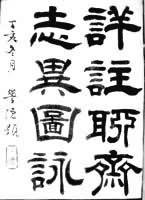 詳註聊齋
志異圖詠
丁亥冬月